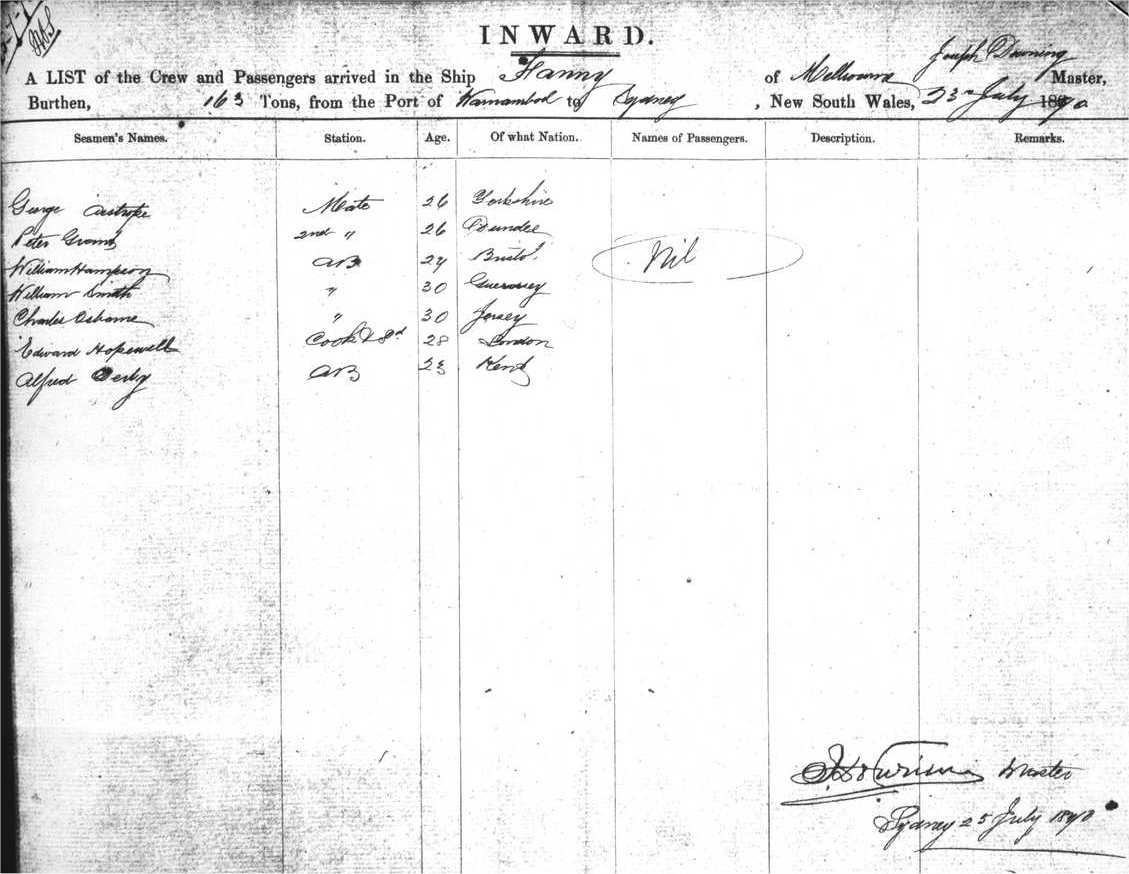 INWARD.
A LIST of the Crew and Passengers arrived in the Ship Fanny of Melbourne Joseph Downing Master,
Burthen, 163 Tons, from the Port of Warnambool to Sydney, New South Wales, 23rd July 1890
Seamen's Names. Station. Age. Of what Nation. Names of Passengers. Description. Remarks.
George Mate 26 Yorkshire
Peter 2nd " 26 Dundee
William Hampson AB 24 Bristol Nil
William Smith " 30 Guernsey
Charles Osborne " 30 Jersey
Edward Hopewell Cook & Sd 28 London
Alfred AB 23 Kent
Master
Sydney 25 July 1890